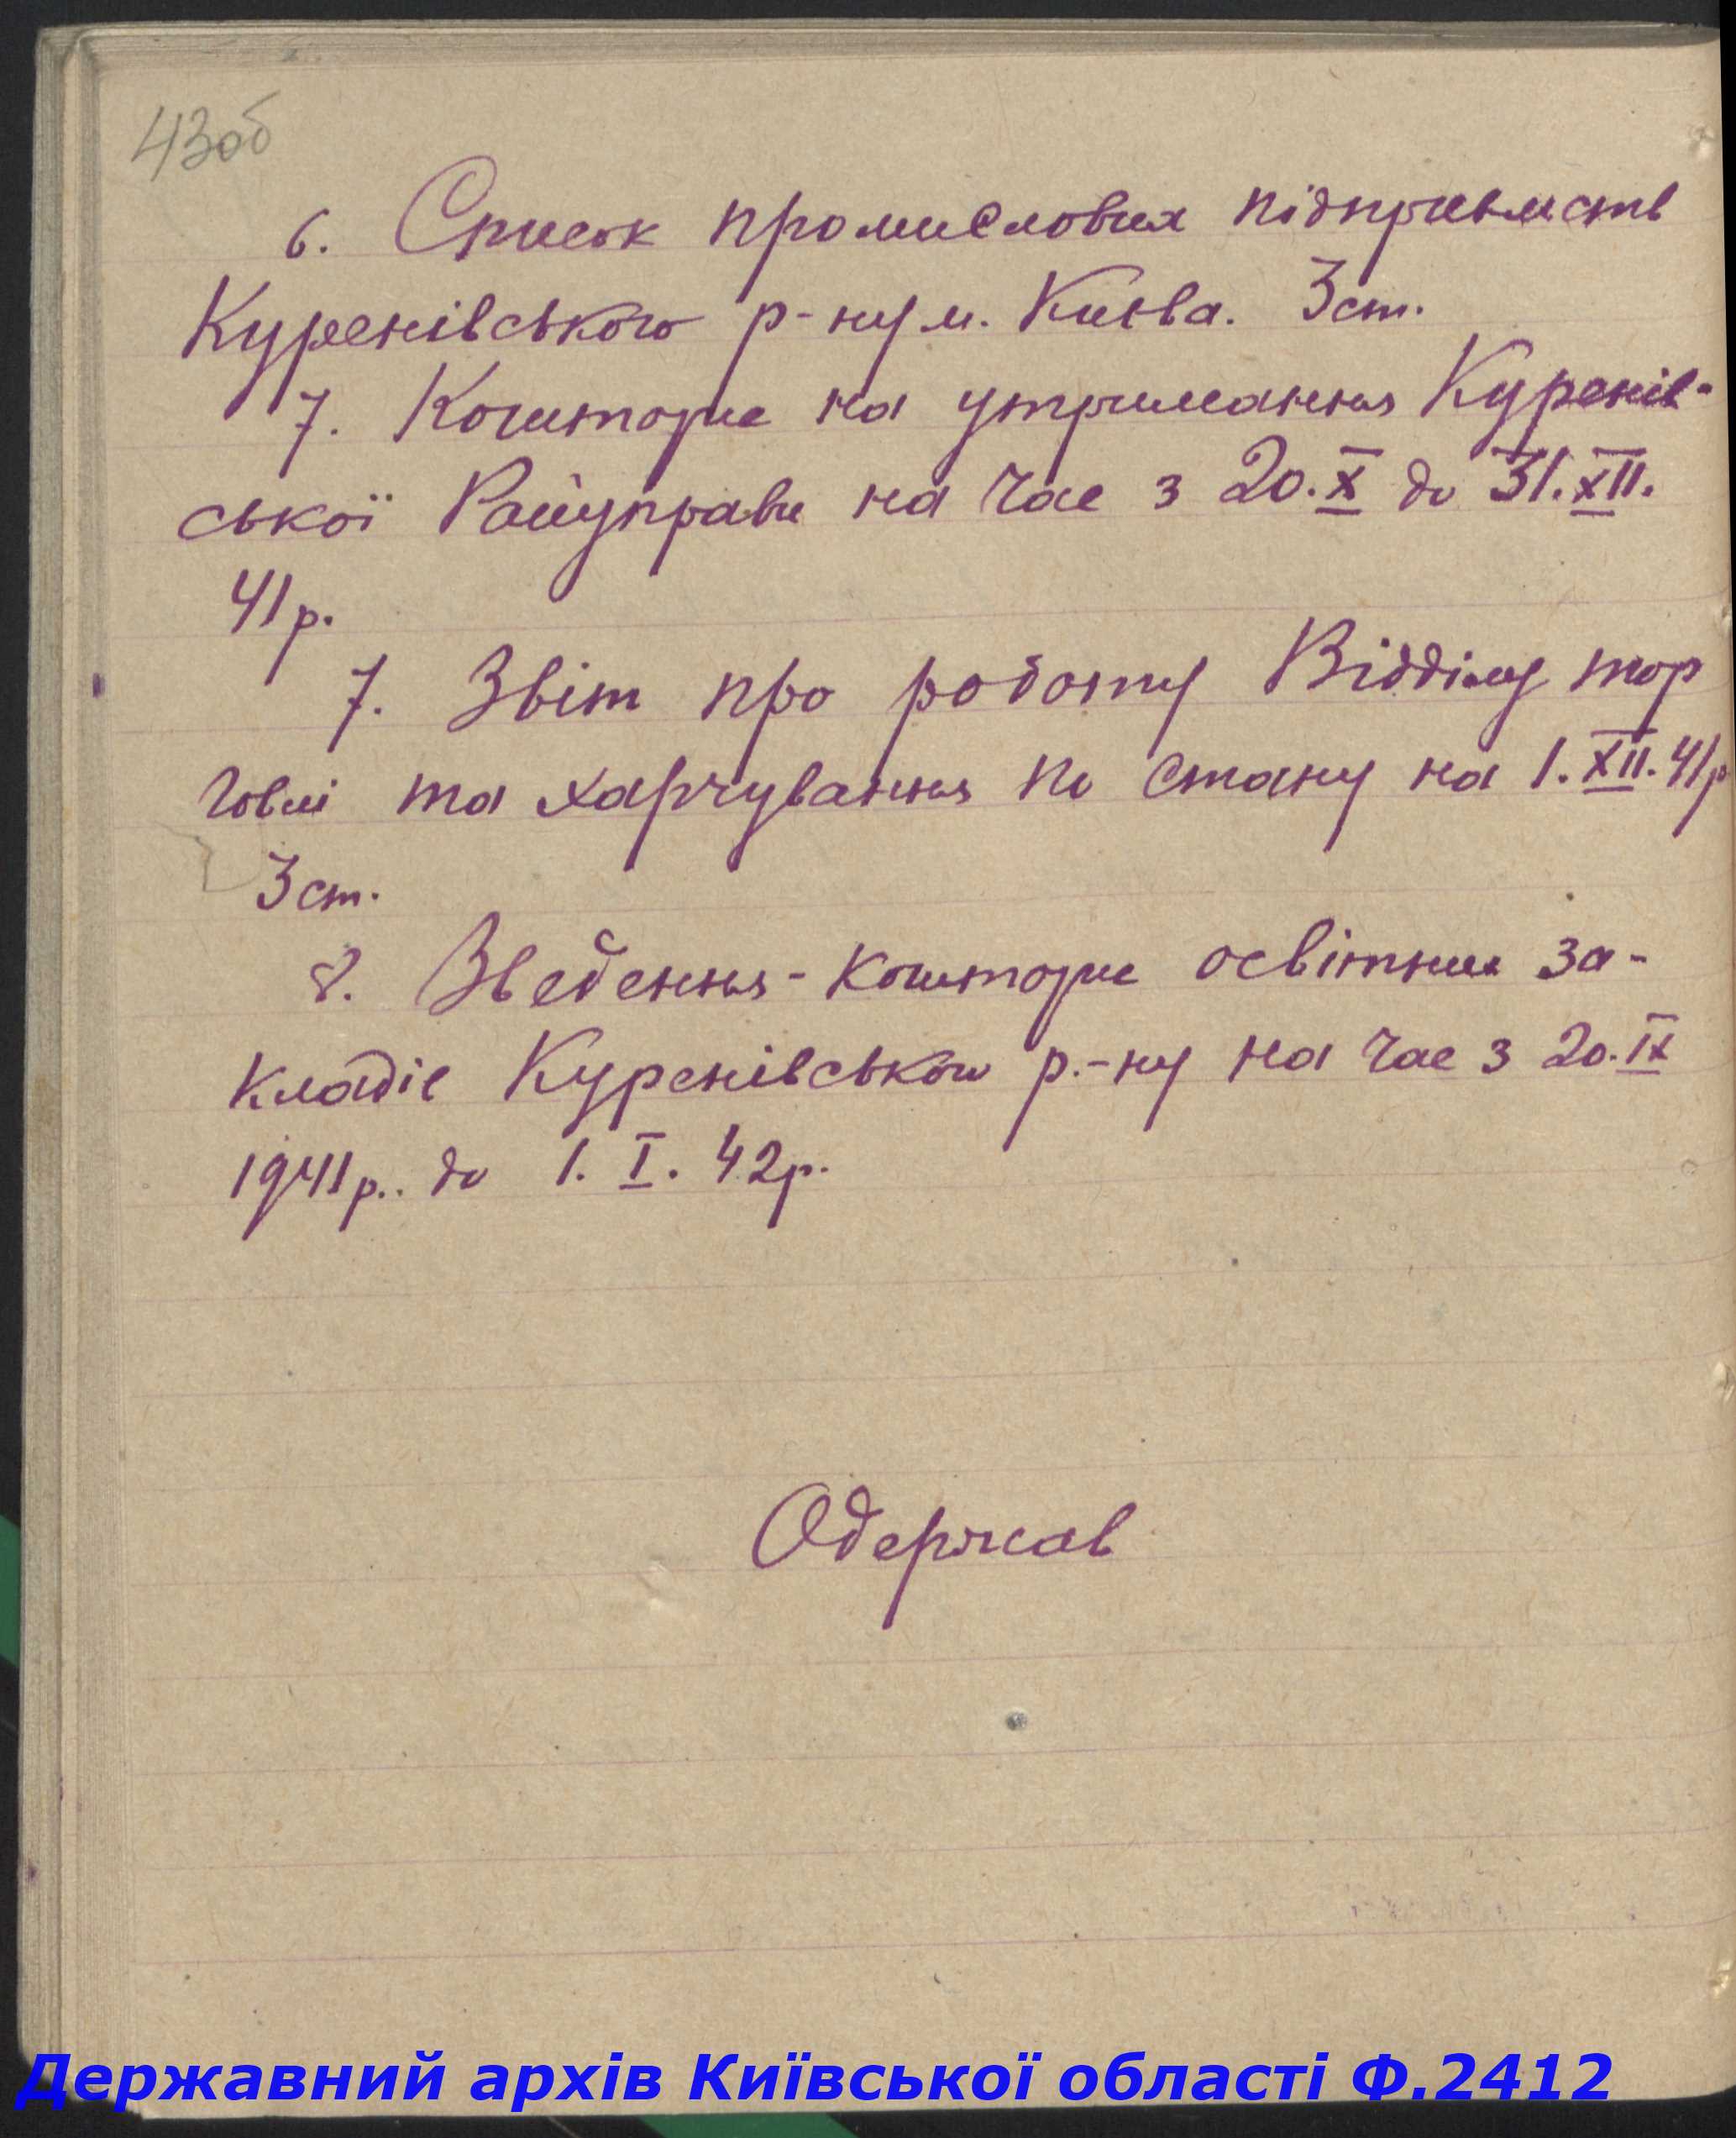 43об
6. Список промислових підприємств
Куренівського р-ну м. Києва. 3 ст.
7. Кошторис на утримання Куренів-
ської Райуправи на час з 20.X до 31.XII.
41 р.
7. Звіт про роботу Відділу тор
говлі та харчування по стану на 1.XII.41 р
3 ст.
8. Зведення-кошторис освітних за-
кладів Куренівського р.-ну на час з 20.IX
1941 р.. до 1. I. 42 р.
Одержав
Державний архів Київської області Ф.2412